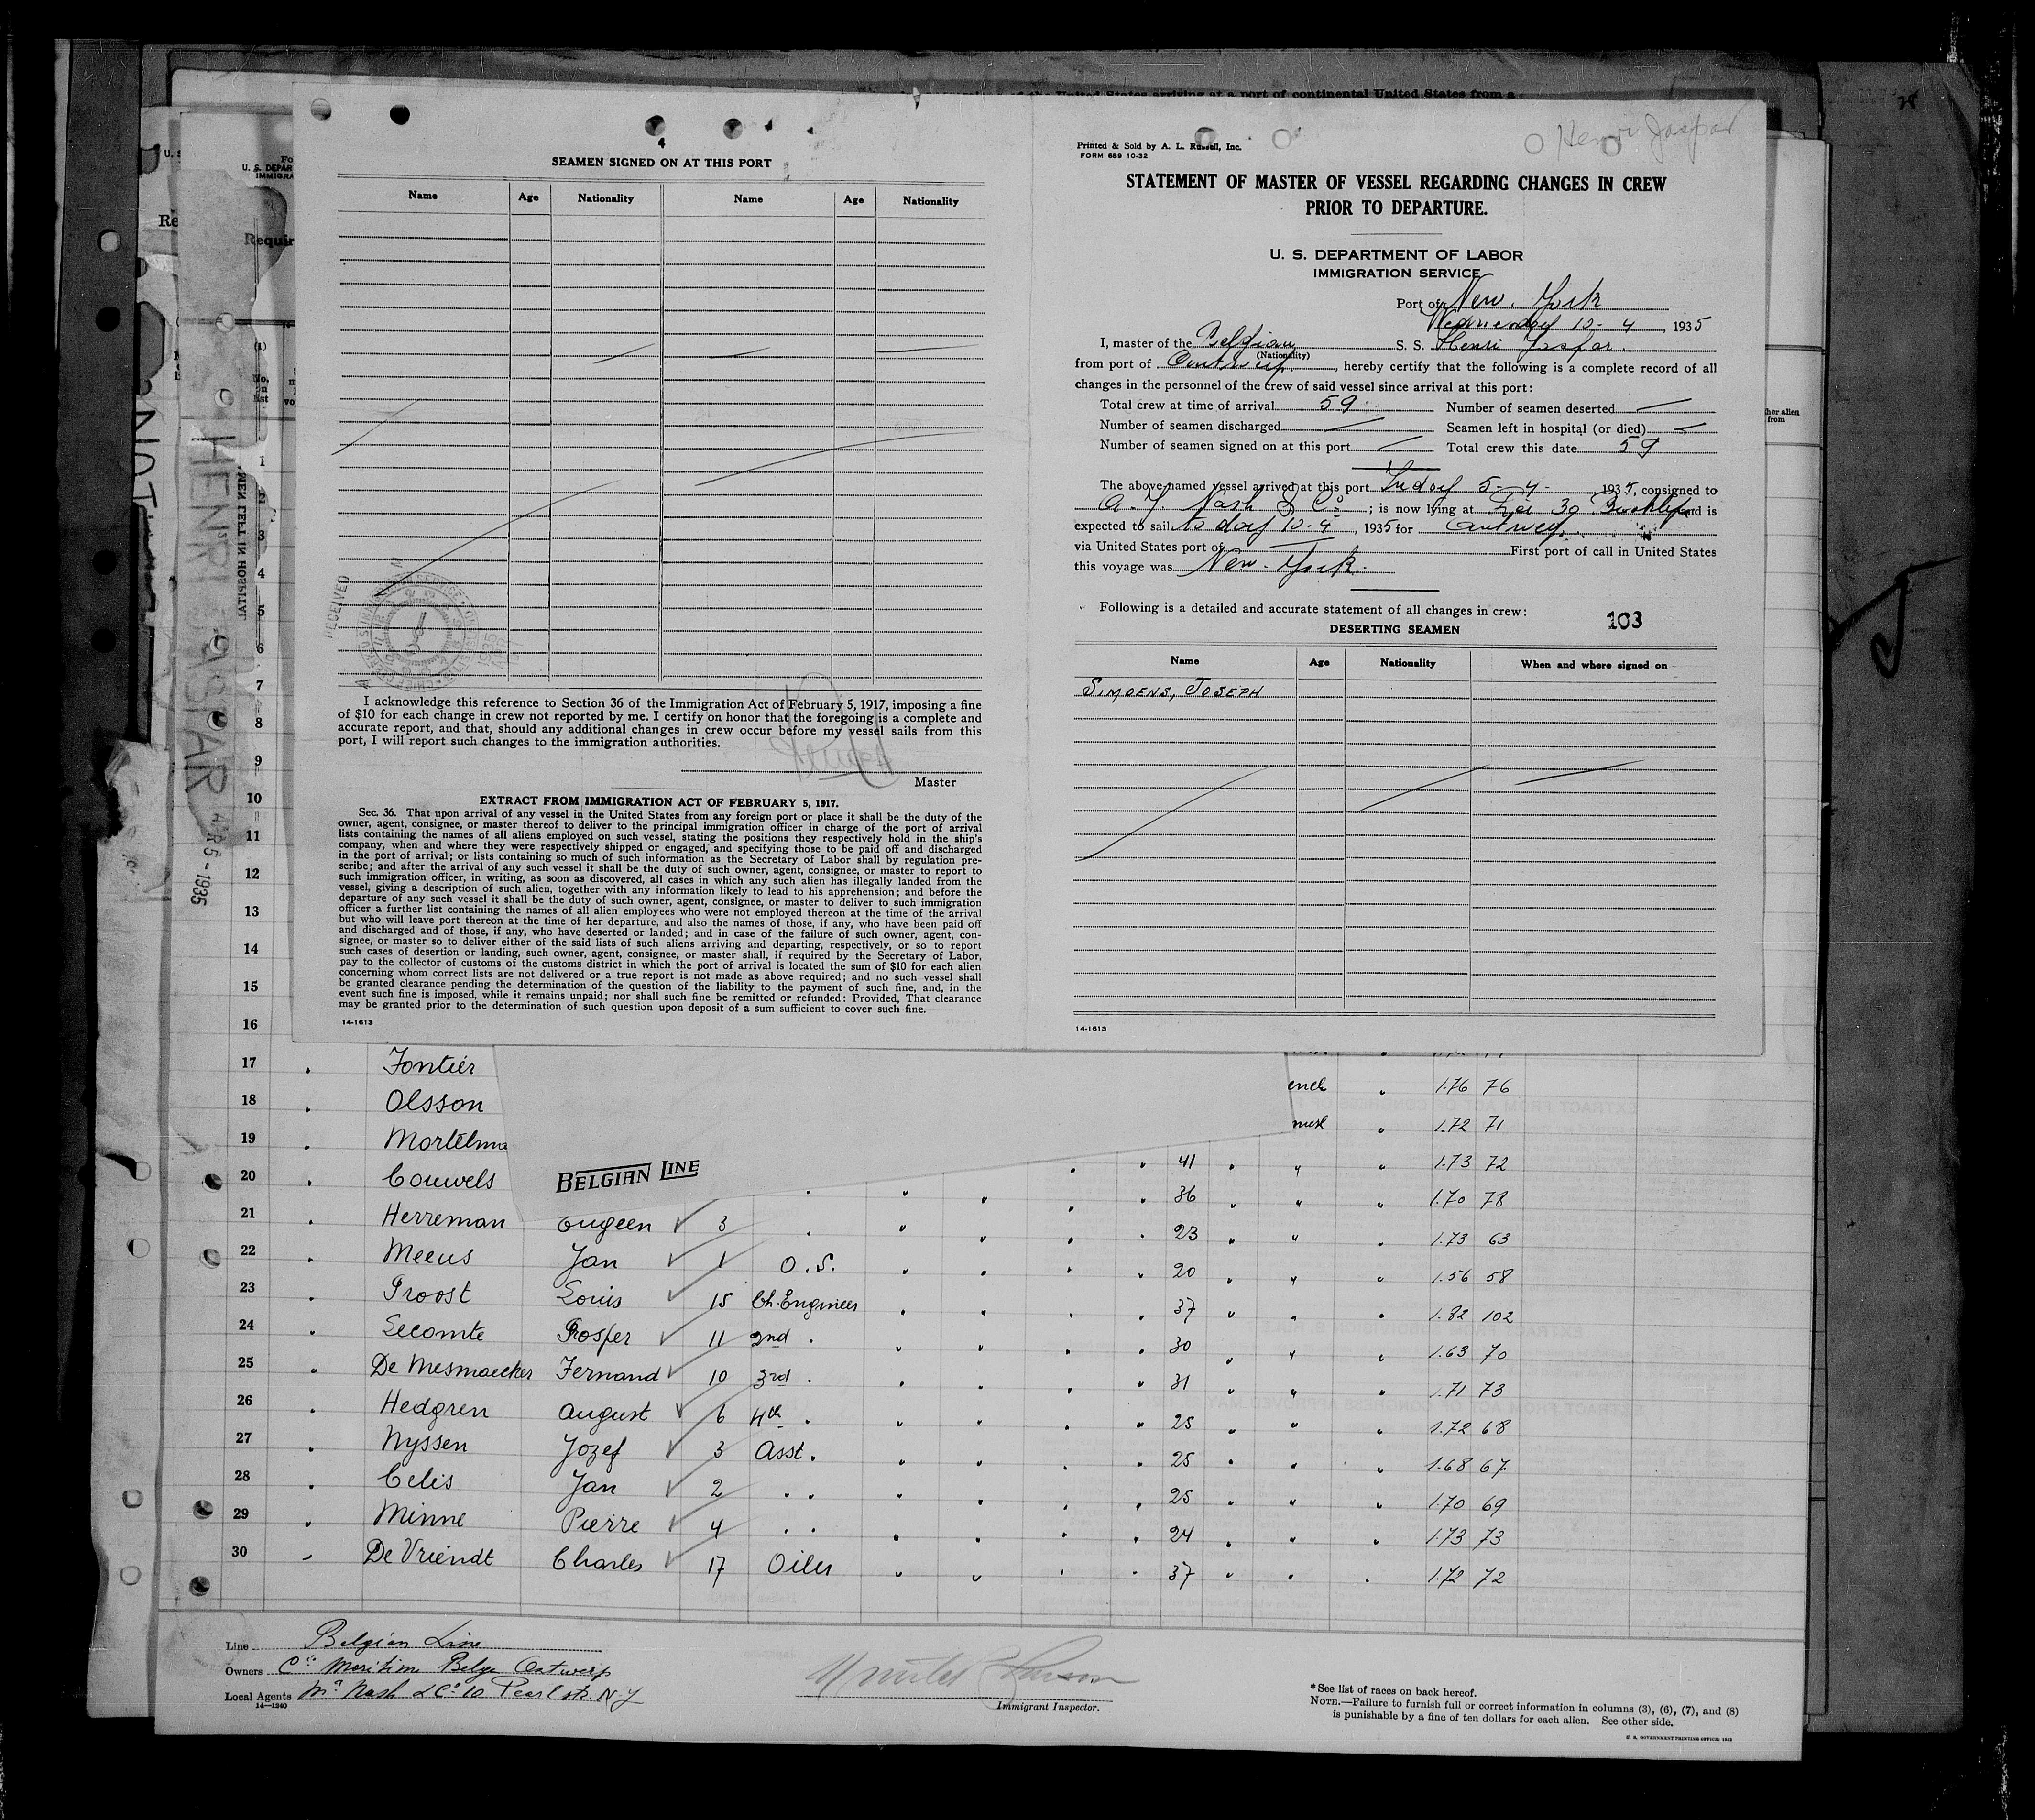 of the United States arriving at a port of continental United States from a
4
SEAMEN SIGNED ON AT THIS PORT
Name Age Nationality Name Age Nationality
RECEIVED
I acknowledge this reference to Section 36 of the Immigration Act of February 5, 1917, imposing a fine
of $10 for each change in crew not reported by me. I certify on honor that the foregoing is a complete and
accurate report, and that, should any additional changes in crew occur before my vessel sails from this
port, I will report such changes to the immigration authorities.
Master
EXTRACT FROM IMMIGRATION ACT OF FEBRUARY 5, 1917.
Sec. 36. That upon arrival of any vessel in the United States from any foreign port or place it shall be the duty of the
owner, agent, consignee, or master thereof to deliver to the principal immigration officer in charge of the port of arrival
lists containing the names of all aliens employed on such vessel, stating the positions they respectively hold in the ship's
company, when and where they were respectively shipped or engaged, and specifying those to be paid off and discharged
in the port of arrival; or lists containing so much of such information as the Secretary of Labor shall by regulation pre-
scribe; and after the arrival of any such vessel it shall be the duty of such owner, agent, consignee, or master to report to
such immigration officer, in writing, as soon as discovered, all cases in which any such alien has illegally landed from the
vessel, giving a description of such alien, together with any information likely to lead to his apprehension; and before the
departure of any such vessel it shall be the duty of such owner, agent, consignee, or master to deliver to such immigration
officer a further list containing the names of all alien employees who were not employed thereon at the time of the arrival
but who will leave port thereon at the time of her departure, and also the names of those, if any, who have been paid off
and discharged and of those, if any, who have deserted or landed; and in case of the failure of such owner, agent, con-
signee, or master so to deliver either of the said lists of such aliens arriving and departing, respectively, or so to report
such cases of desertion or landing, such owner, agent, consignee, or master shall, if required by the Secretary of Labor,
pay to the collector of customs of the customs district in which the port of arrival is located the sum of $10 for each alien
concerning whom correct lists are not delivered or a true report is not made as above required; and no such vessel shall
be granted clearance pending the determination of the question of the liability to the payment of such fine, and, in the
event such fine is imposed, while it remains unpaid; nor shall such fine be remitted or refunded: Provided, That clearance
may be granted prior to the determination of such question upon deposit of a sum sufficient to cover such fine.
14-1613
Henri Jaspar
Printed & Sold by A. L. Russell, Inc.
FORM 689 10-32
STATEMENT OF MASTER OF VESSEL REGARDING CHANGES IN CREW
PRIOR TO DEPARTURE.
U. S. DEPARTMENT OF LABOR
IMMIGRATION SERVICE
Port of New York
Wednesday 10-4, 1935
I, master of the Belgian S. S. Henri Jaspar.
(Nationality)
from port of Antwerp, hereby certify that the following is a complete record of all
changes in the personnel of the crew of said vessel since arrival at this port:
Total crew at time of arrival 59 Number of seamen deserted —
Number of seamen discharged — Seamen left in hospital (or died) —
Number of seamen signed on at this port — Total crew this date 59
The above-named vessel arrived at this port Friday 5-4-, 1935, consigned to
Nash & Co; is now lying at Pier 30 Brooklyn and is
expected to sail to day 10-4, 1935 for Antwerp
via United States port of — First port of call in United States
this voyage was New-York.
Following is a detailed and accurate statement of all changes in crew:
103
DESERTING SEAMEN
Name Age Nationality When and where signed on
SIMOENS, JOSEPH
14-1613
U. S. DEPAR
IMMIGRA
Requir
HENRI JASPAR
MEN LEFT IN HOSPITAL
APR 5 - 1935
her alien
from
(1)
No.
on
list
1
2
3
4
5
6
7
8
9
10
11
12
13
14
15
16
17 Fontier
18 Olsson ench 1.76 76
19 Mortelma 1.72 71
20 Couwels 41 1.73 72
BELGIAN LINE
36 1.70 78
21 Herreman Eugeen 3 23 1.73 63
22 Meeus Jan 1 O.S. 20 1.56 58
23 Proost Louis 15 Ch. Engineer 37 1.82 102
24 Lecomte Prosper 11 2nd 30 1.63 70
25 De Mesmaecker Fernand 10 3rd 31 1.71 73
26 Hedgren August 6 4th 25 1.72 68
27 Nyssen Jozef 3 Asst. 25 1.68 67
28 Celis Jan 2 25 1.70 69
29 Minne Pierre 4 24 1.73 73
30 De Vriendt Charles 17 Oiler 37 1.72 72
Line Belgian Line
Owners Cie Maritime Belge Antwerp
Local Agents Nash & Co 10 Pearl str. N Y
14—1240
Immigrant Inspector.
*See list of races on back hereof.
NOTE.—Failure to furnish full or correct information in columns (3), (6), (7), and (8)
is punishable by a fine of ten dollars for each alien. See other side.
U. S. GOVERNMENT PRINTING OFFICE: 1932